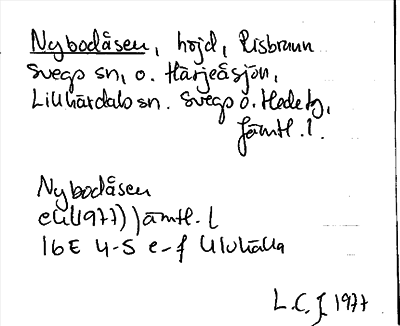 Nybodåsen, höjd, Risbrunn
Svegs sn, o. Härjeåsjön,
Lillhärdals sn. Svegs o. Hede tg,
Jämtl. l.
Nybodåsen
ek (1977) Jämtl. l
16E 4-5 e-f
L.C.J. 1977